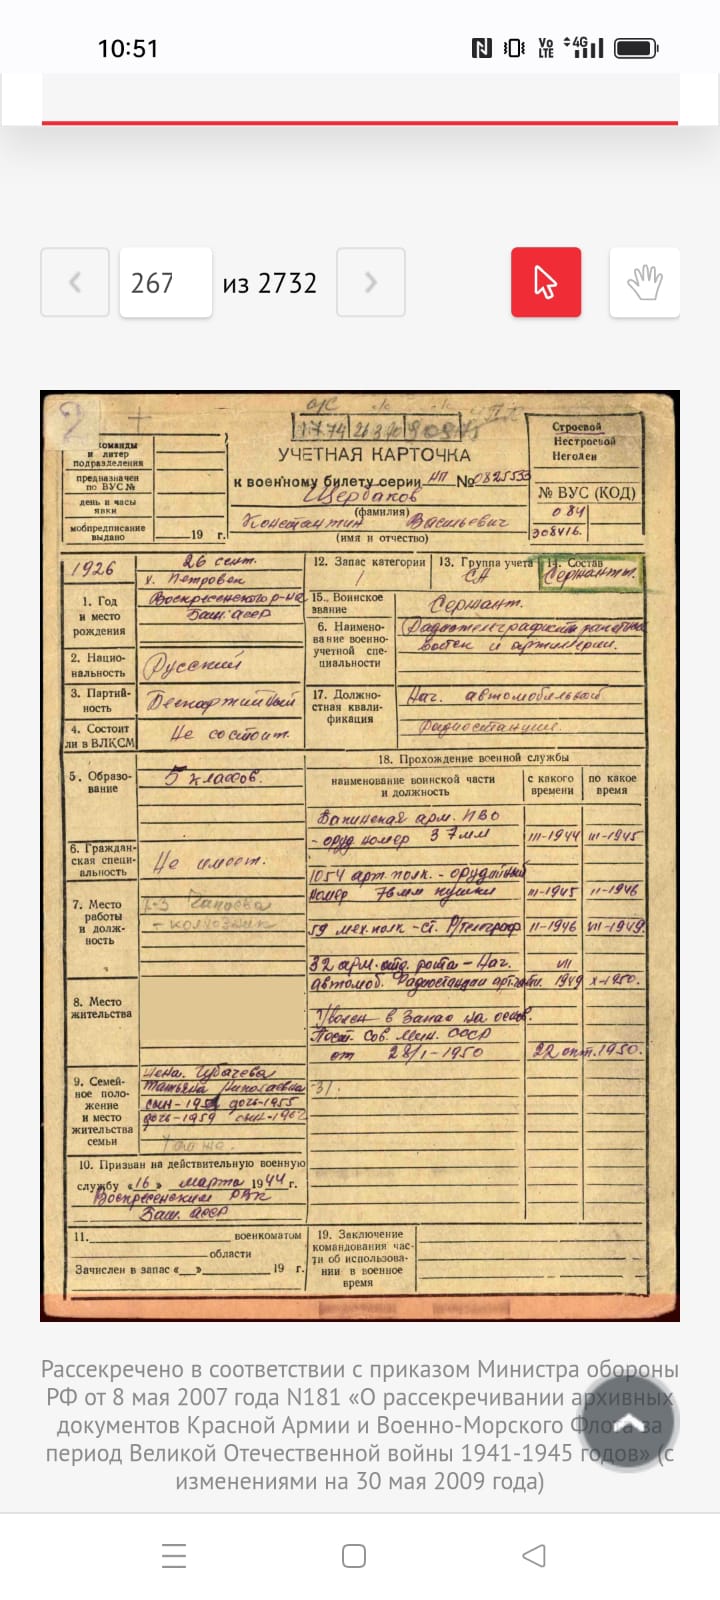 10:51
Vo LTE 4G
267 из 2732
2
УЧЕТНАЯ КАРТОЧКА
к военному билету серии НП № 0825533
Щербаков
(фамилия)
Константин Васильевич
(имя и отчество)
команды и литер подразделения
предназначен по ВУС №
день и часы явки
мобпредписание выдано 19 г.
Строевой
Нестроевой
Негоден
№ ВУС (КОД)
084
1926
26 сент.
х. Петровск
Воскресенского р-на
Баш. АССР
1. Год и место рождения
2. Национальность
Русский
3. Партийность
Беспартийный
4. Состоит ли в ВЛКСМ
Не состоит.
5. Образование
5 классов.
6. Гражданская специальность
Не имеет.
7. Место работы и должность
Чапаева
- колхозник
8. Место жительства
9. Семейное положение и место жительства семьи
жена. Чубачева
Татьяна Николаевна -31.
дочь-1955
дочь-1959
10. Призван на действительную военную
службу «16» марта 1944 г.
Воскресенским РВК
Баш. АССР
11. военкоматом
области
Зачислен в запас « » 19 г.
12. Запас категории
1
13. Группа учета
СА
14. Состав
Сержант.
15. Воинское звание
Сержант.
6. Наименование военно-учетной специальности
Радиотелеграфист
и артиллерии.
17. Должностная квалификация
Нач. автомобильной
Радиостанции
18. Прохождение военной службы
наименование воинской части и должность
с какого времени
по какое время
Бакинская арм. ПВО
- оруд номер 37мм III-1944 III-1945
1054 арт. полк. - орудийный
номер 76мм пушки III-1945 II-1946
59 мех. полк - Ст. Р/телеграф II-1946 VII-1949.
32 арм. отд. рота - Нач. VII
автомоб. Радиостанции 1949 X-1950.
Уволен в Запас на основ.
Пост. Сов. Мин. СССР
от 28/I-1950 22 окт. 1950.
19. Заключение командования части об использовании в военное время
Рассекречено в соответствии с приказом Министра обороны
РФ от 8 мая 2007 года N181 «О рассекречивании архивных
документов Красной Армии и Военно-Морского Флота за
период Великой Отечественной войны 1941-1945 годов» (с
изменениями на 30 мая 2009 года)